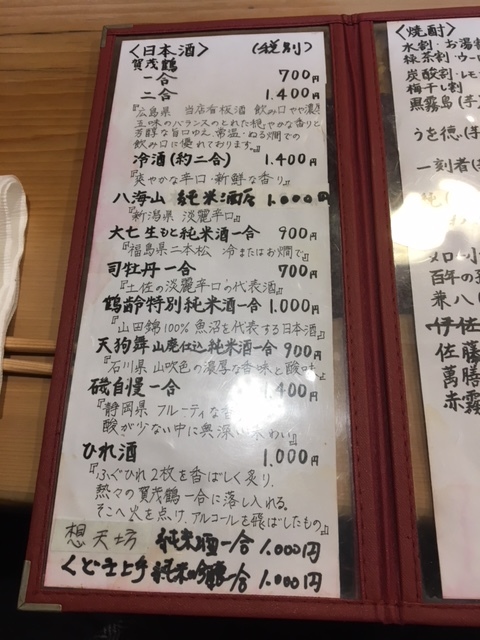 〈日本酒〉 (税別)
賀茂鶴
一合 700円
二合 1.400円
『広島県 当店看板酒 飲み口やや濃
五味のバランスのとれた穏やかな香りと
芳醇な旨口ゆえ、常温・ぬる燗での
飲み口に優れております。』
冷酒(約二合) 1.400円
『爽やかな辛口・新鮮な香り』
八海山 純米酒 1.000円
『新潟県 淡麗辛口』
大七 生もと純米酒一合 900円
『福島県二本松 冷またはお燗で』
司牡丹一合 700円
『土佐の淡麗辛口の代表酒』
鶴齢特別純米酒一合 1.000円
『山田錦100% 魚沼を代表する日本酒』
天狗舞 山廃仕込 純米酒一合 900円
『石川県 山吹色の濃厚な香味と酸味
磯自慢一合 1.400円
『静岡県 フルーティな
酸が少ない中に奥深い味わい』
ひれ酒 1.000円
『ふぐひれ2枚を香ばしく炙り、
熱々の賀茂鶴一合に落し入れる。
そこへ火を点け、アルコールを飛ばしたもの』
想天坊 純米酒一合 1.000円
くどき上手 純米吟醸一合 1.000円
〈焼酎〉
水割・お湯
緑茶割・ウー
炭酸割・レモ
梅干し割
黒霧島(芋
うを徳(
一刻者(
メロー
百年の
兼八(
伊佐
佐藤
萬膳
赤霧